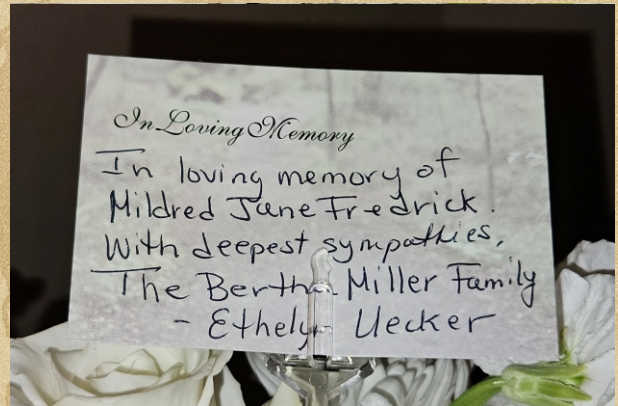 In Loving Memory
In loving memory of
Mildred Jane Fredrick.
With deepest sympathies,
The Bertha Miller Family
- Ethelyn Uecker